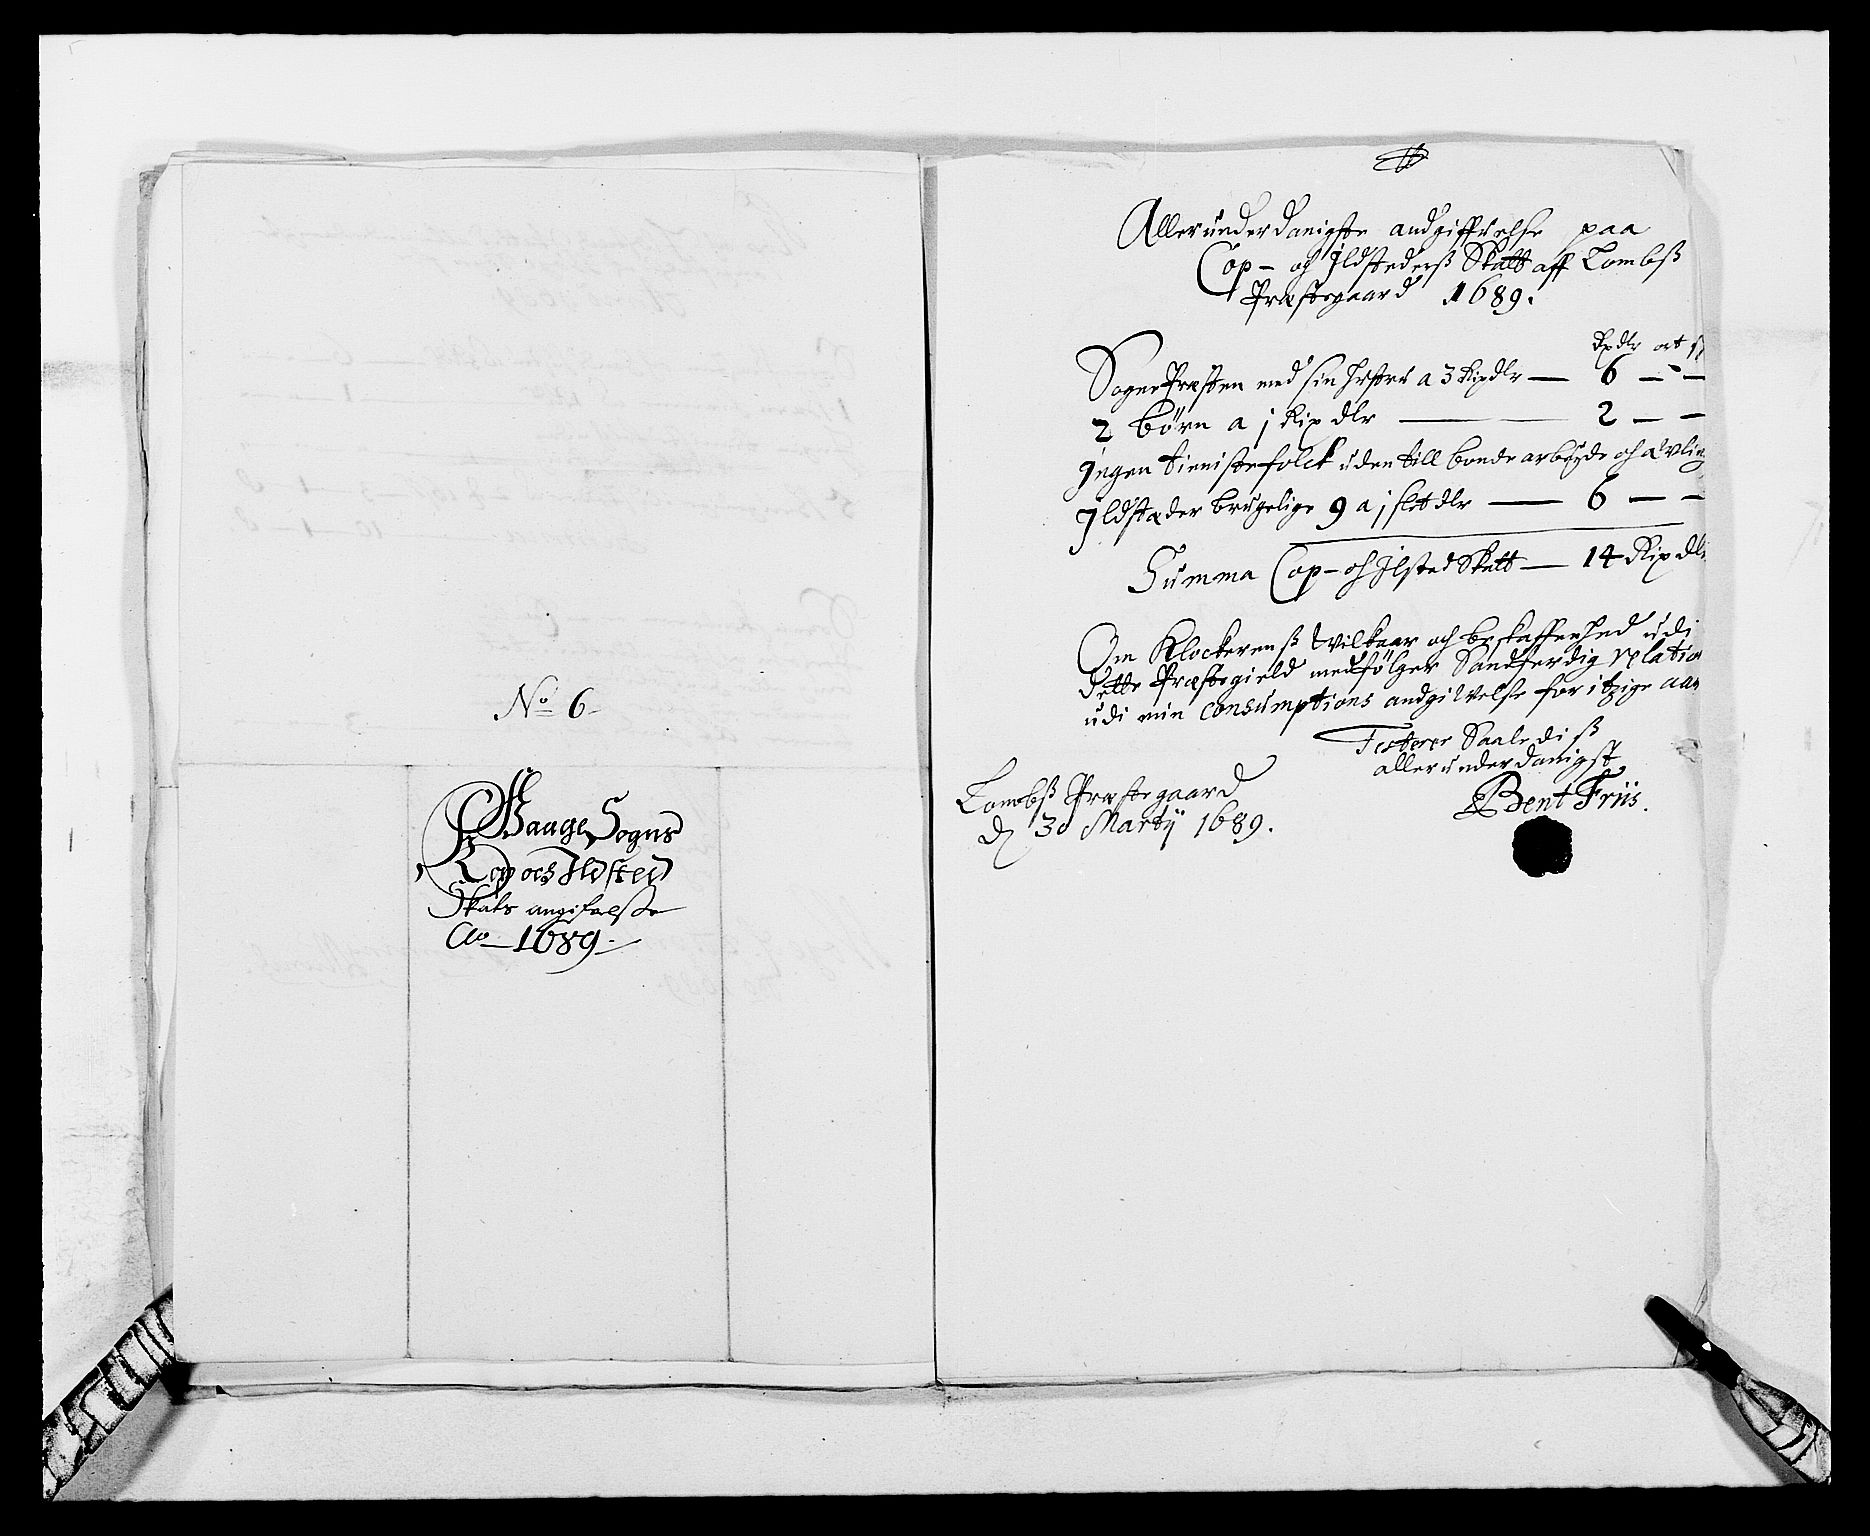 No 6
Waage Sogns
Kop och Ildsted
Skats angifvelsse
Ao 1689.
Allerunderdanigste andgiffvelse paa
Cop- och Ildstederß Skatt aff Lombß
Præstegaard 1689.
Rixdlr ort
SognePræsten med sin hustru a 3 Rixdlr — 6 — —
2 børn a j Rix dlr — 2 — —
Ingen tienistefolck uden till bonde arbeyde och
Ildstæder brugelige 9 a j slet dlr — 6 — —
Summa Cop- och Ilsted Skatt — 14 Rix dlr
Om Klockerenß Wilkaar och beskaffenhed udi
dette Præstegield medfølger Sandferdig relation
udi min Consumptions andgivelse for itzige aar
Testerer Saaledisß
allerunderdanigst
Bent Friis.
Lombß Præstegaard
d 30 Martij 1689.